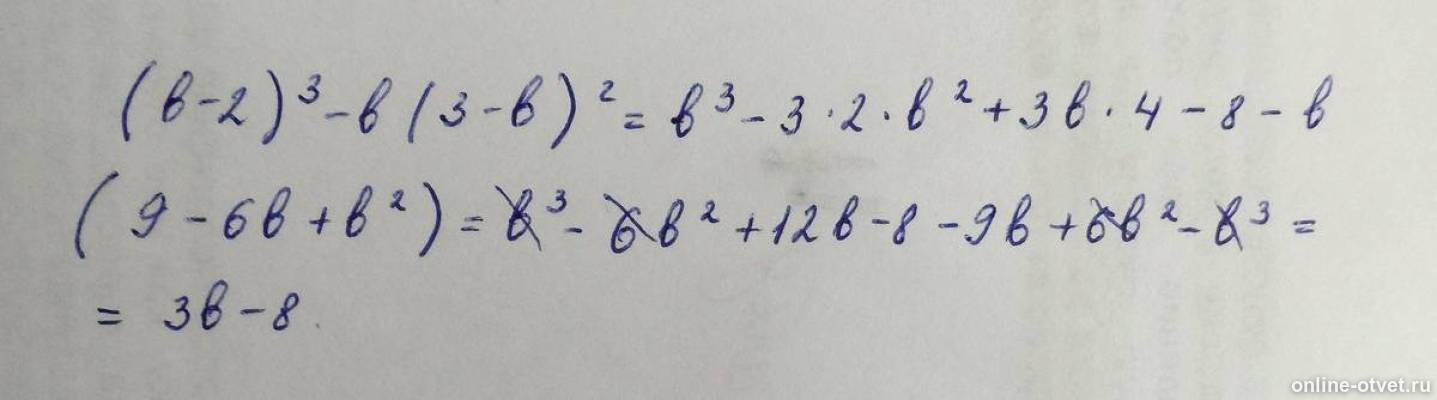 (в-2)³-в(3-в)²=в³-3·2·в²+3в·4-8-в
(9-6в+в²)=в³-6в²+12в-8-9в+6в²-в³=
=3в-8.
online-otvet.ru